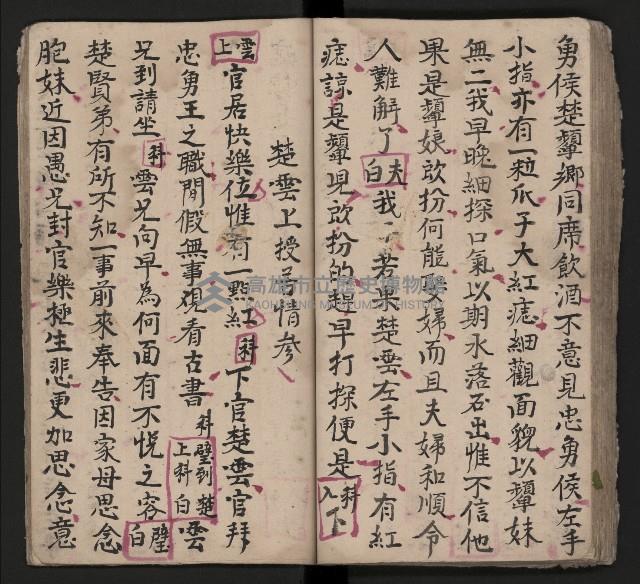 勇侯楚顰鄉同席飲酒不意見忠勇侯左手
小指亦有一粒爪子大紅痣細觀面貌以顰妹
無二我早晚細探口氣以期水落石出惟不信他
果是顰娘改扮何能取婦而且夫婦和順令
人難解了夫白我 若果楚雲左手小指有紅
痣諒是顰兒改扮的趕早打探便是科入下
楚雲上授 情參
雲上官居快樂位惟有一點紅科下官楚雲官拜
忠勇王之職閒假無事观看古書科璧到楚上科白雲
兄到請坐科雲兄向早為何面有不悅之容璧白
楚賢弟有所不知一事前來奉告因家母思念
胞妹近因愚兄封官樂極生悲更加思念意
高雄市立歷史博物館
KAOHSIUNG MUSEUM OF HISTORY